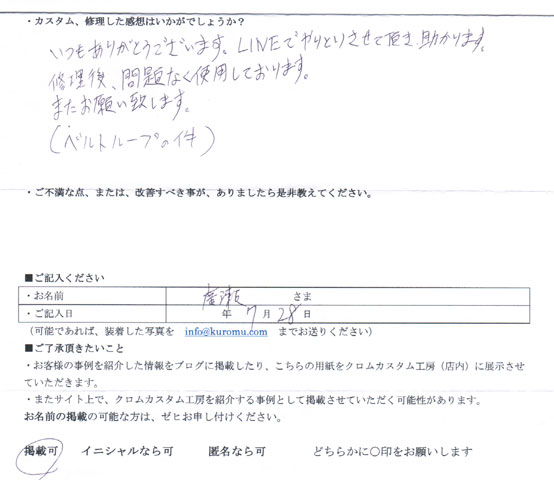 ・カスタム、修理した感想はいかがでしょうか？
いつもありがとうございます。LINEでやりとりさせて頂き、助かります。
修理後、問題なく使用しております。
またお願い致します。
(ベルトループの件)
・ご不満な点、または、改善すべき事が、ありましたら是非教えてください。
■ご記入ください
・お名前 廣瀬 さま
・ご記入日 年 7 月 28 日
(可能であれば、装着した写真を info@kuromu.com までお送りください)
■ご了承頂きたいこと
・お客様の事例を紹介した情報をブログに掲載したり、こちらの用紙をクロムカスタム工房（店内）に展示させ
ていただきます。
・またサイト上で、クロムカスタム工房を紹介する事例として掲載させていただく可能性があります。
お名前の掲載の可能な方は、ゼヒお申し付けください。
掲載可 イニシャルなら可 匿名なら可 どちらかに〇印をお願いします